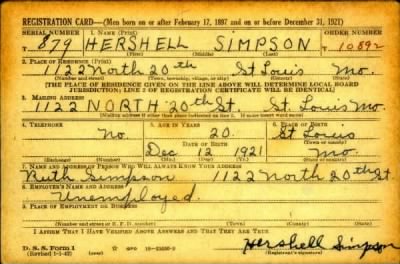 REGISTRATION CARD—(Men born on or after February 17, 1897 and on or before December 31, 1921)
SERIAL NUMBER 1. NAME (Print) ORDER NUMBER
T 879 HERSHELL SIMPSON T 10892
(First) (Middle) (Last)
2. PLACE OF RESIDENCE (Print)
1122 North 20th St Louis Mo.
(Number and street) (Town, township, village, or city) (County) (State)
[THE PLACE OF RESIDENCE GIVEN ON THE LINE ABOVE WILL DETERMINE LOCAL BOARD
JURISDICTION; LINE 2 OF REGISTRATION CERTIFICATE WILL BE IDENTICAL]
3. MAILING ADDRESS
1122 NORTH 20th St. St. Louis Mo.
[Mailing address if other than place indicated on line 2. If same insert word same]
4. TELEPHONE 5. AGE IN YEARS 6. PLACE OF BIRTH
No. 20. St Louis
DATE OF BIRTH (Town or county)
Dec 12 1921 Mo.
(Exchange) (Number) (Mo.) (Day) (Yr.) (State or country)
7. NAME AND ADDRESS OF PERSON WHO WILL ALWAYS KNOW YOUR ADDRESS
Ruth Simpson 1122 North 20th St
8. EMPLOYER'S NAME AND ADDRESS
Unemployed.
9. PLACE OF EMPLOYMENT OR BUSINESS
(Number and street or R. F. D. number) (Town) (County) (State)
I AFFIRM THAT I HAVE VERIFIED ABOVE ANSWERS AND THAT THEY ARE TRUE.
D. S. S. Form 1
(Revised 1-1-42) GPO Hershell Simpson
(Registrant's signature)